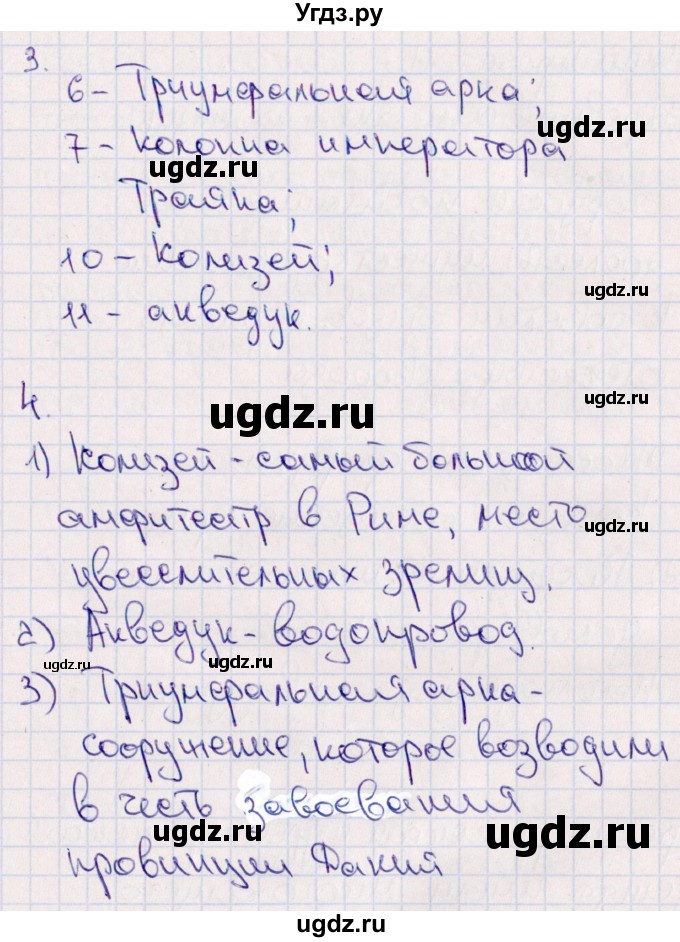 Угдз.ру
3.
6 – Триумфальная арка;
ugdz.ru
7 – колонна императора
ugdz.ru
Траяна;
10 – Колизей;
ugdz.ru
11 – акведук.
4.
ugdz.ru
1) Колизей – самый большой
амфитеатр в Риме, место
ugdz.ru
увеселительных зрелищ.
2) Акведук – водопровод.
ugdz.ru
ugdz.ru
3) Триумфальная арка –
сооружение, которое возводили
в честь завоевания
ugdz.ru
ugdz.ru
провинции Дакия
ugdz.ru